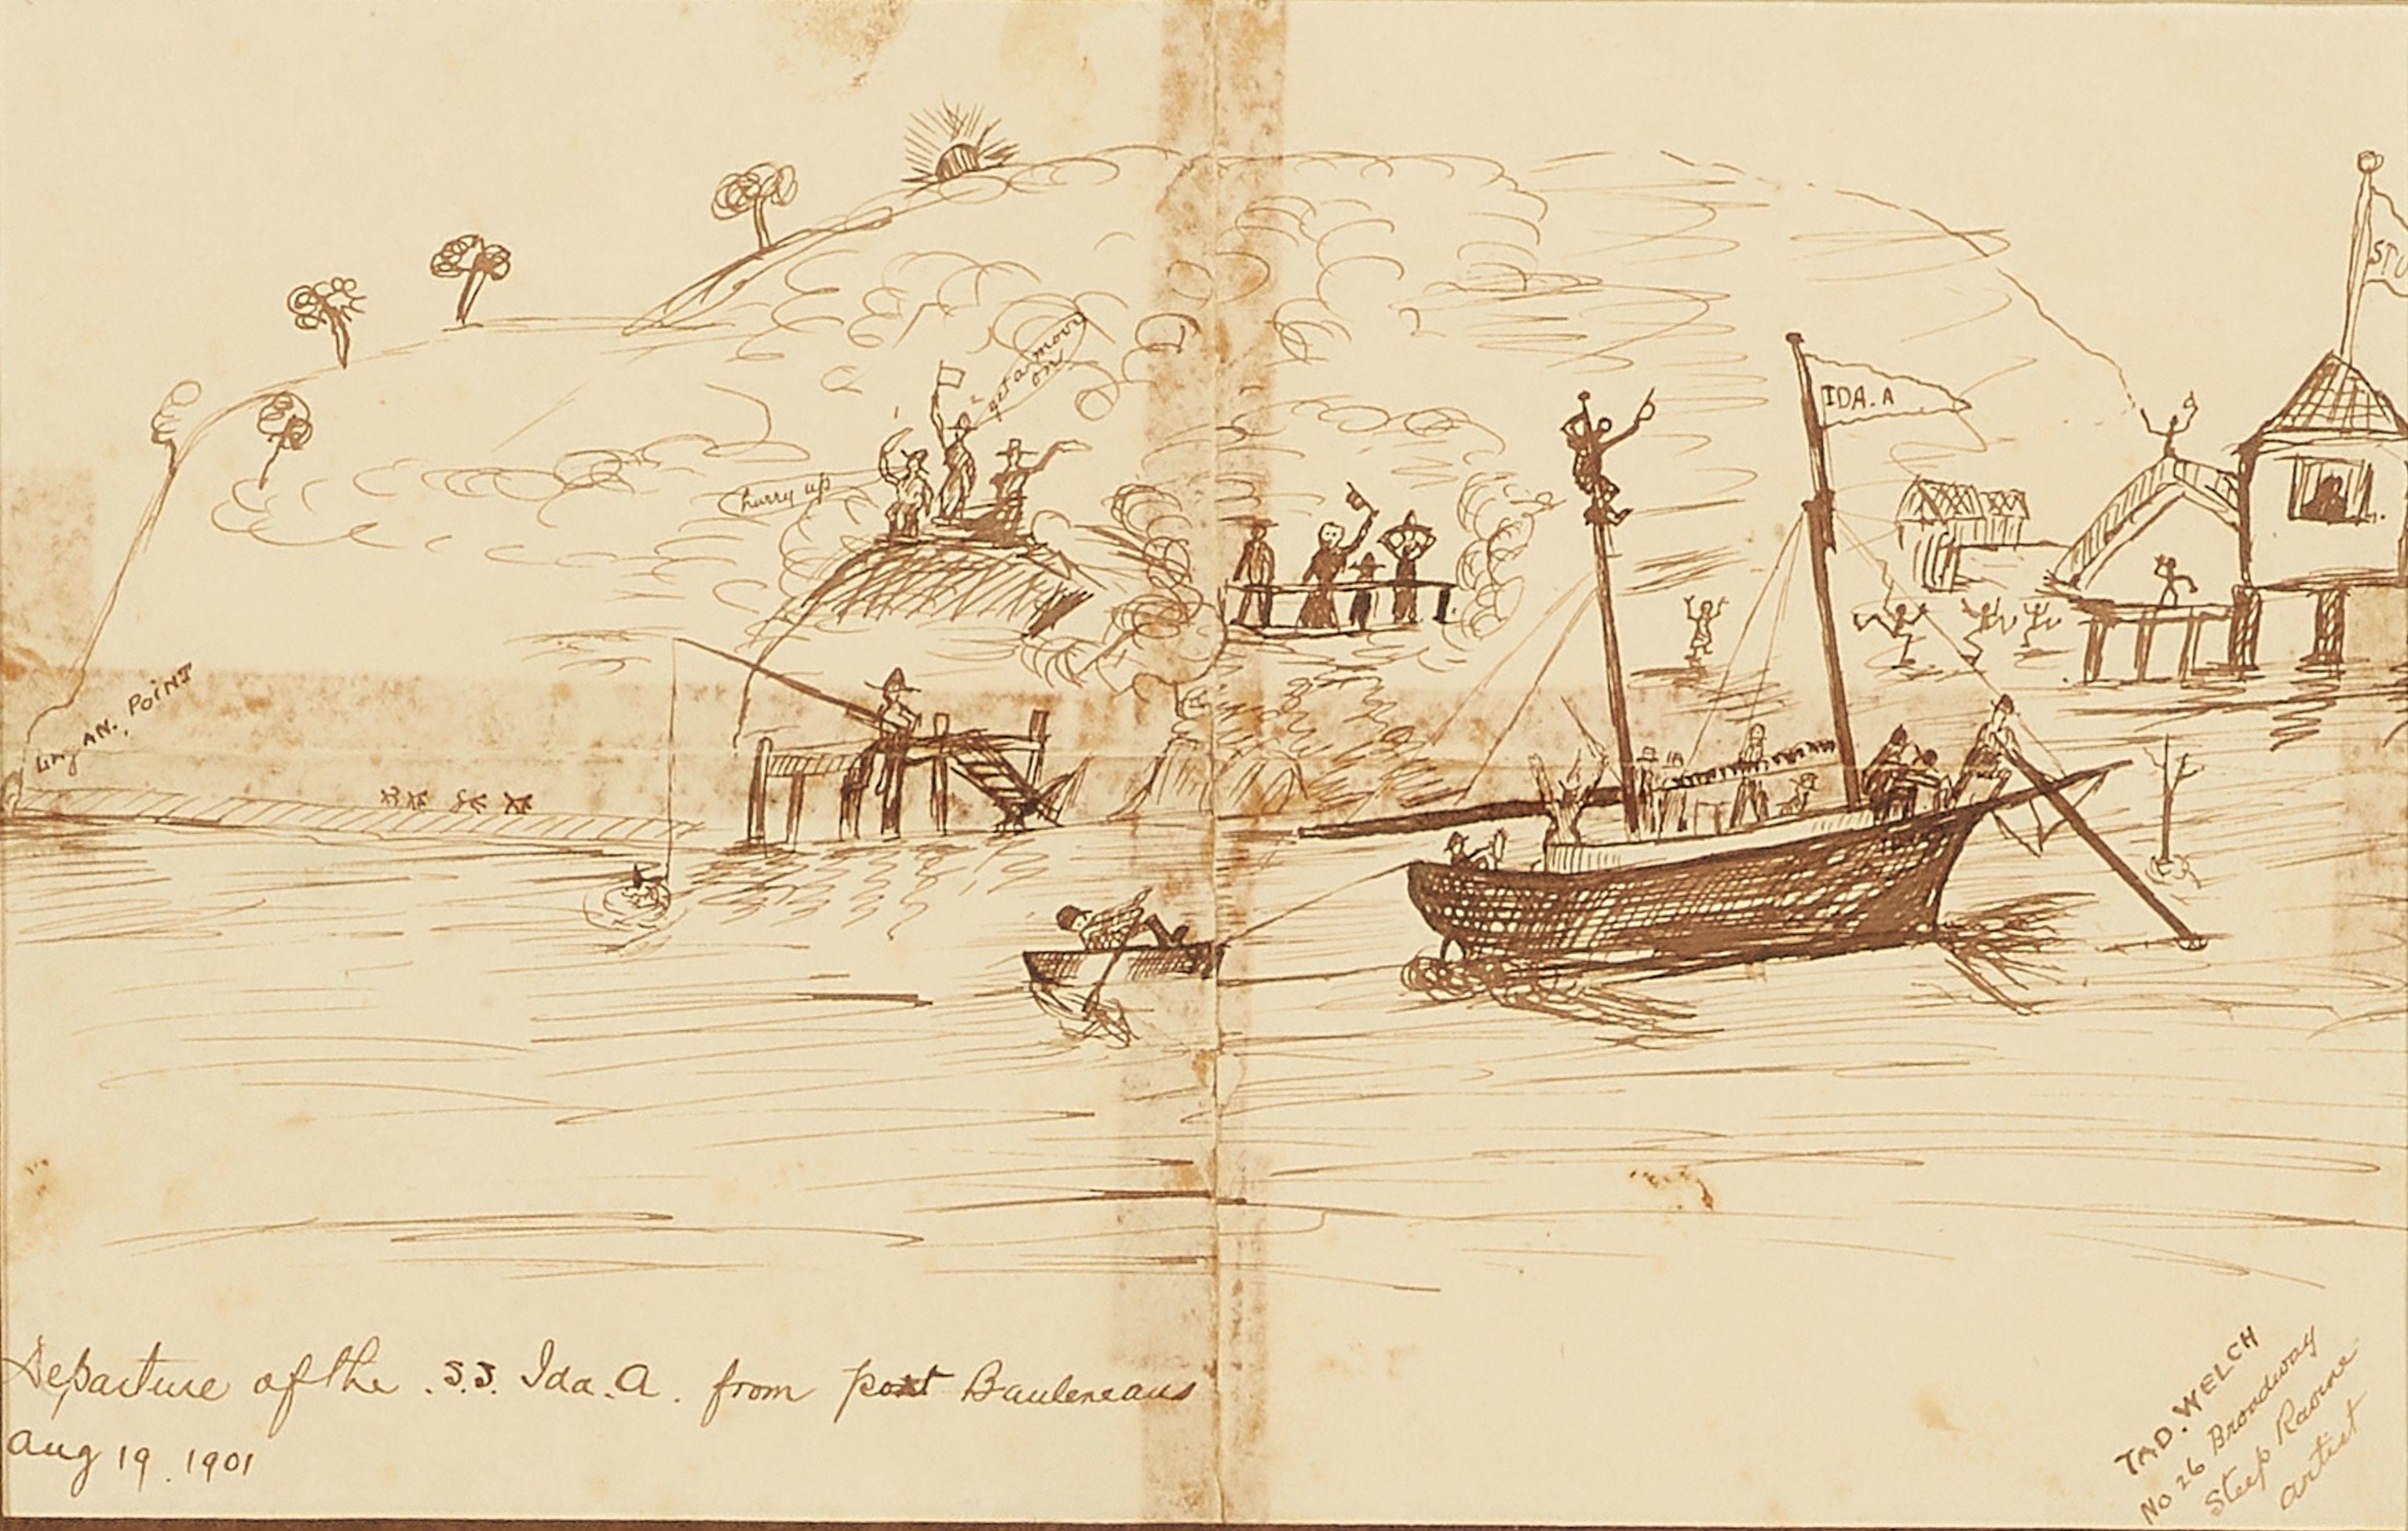 STU
IDA. A
get a move
on
hurry up
AN. POINT
Departure of the .S.S. Ida. A. from port Bauleneaus
Aug 19. 1901
TAD. WELCH
No 26 Broadway
Steep Ravine
Artist